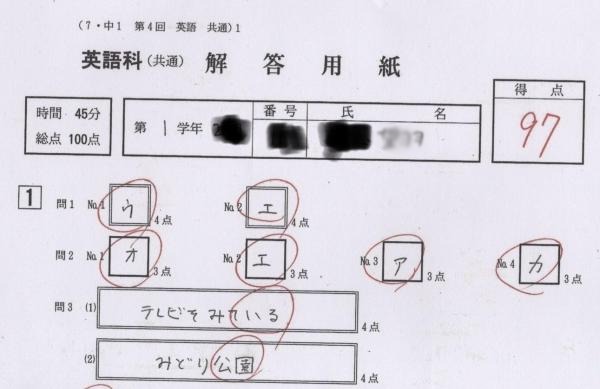 (7・中1 第4回 英語 共通)1
英語科(共通) 解答用紙
時間 45分
総点 100点
第 1 学年
番号
氏 名
得点
97
1
問1 No.1 ウ 4点 No.2 エ 4点
問2 No.1 オ 3点 No.2 エ 3点 No.3 ア 3点 No.4 カ 3点
問3 (1) テレビをみている 4点
(2) みどり公園 4点